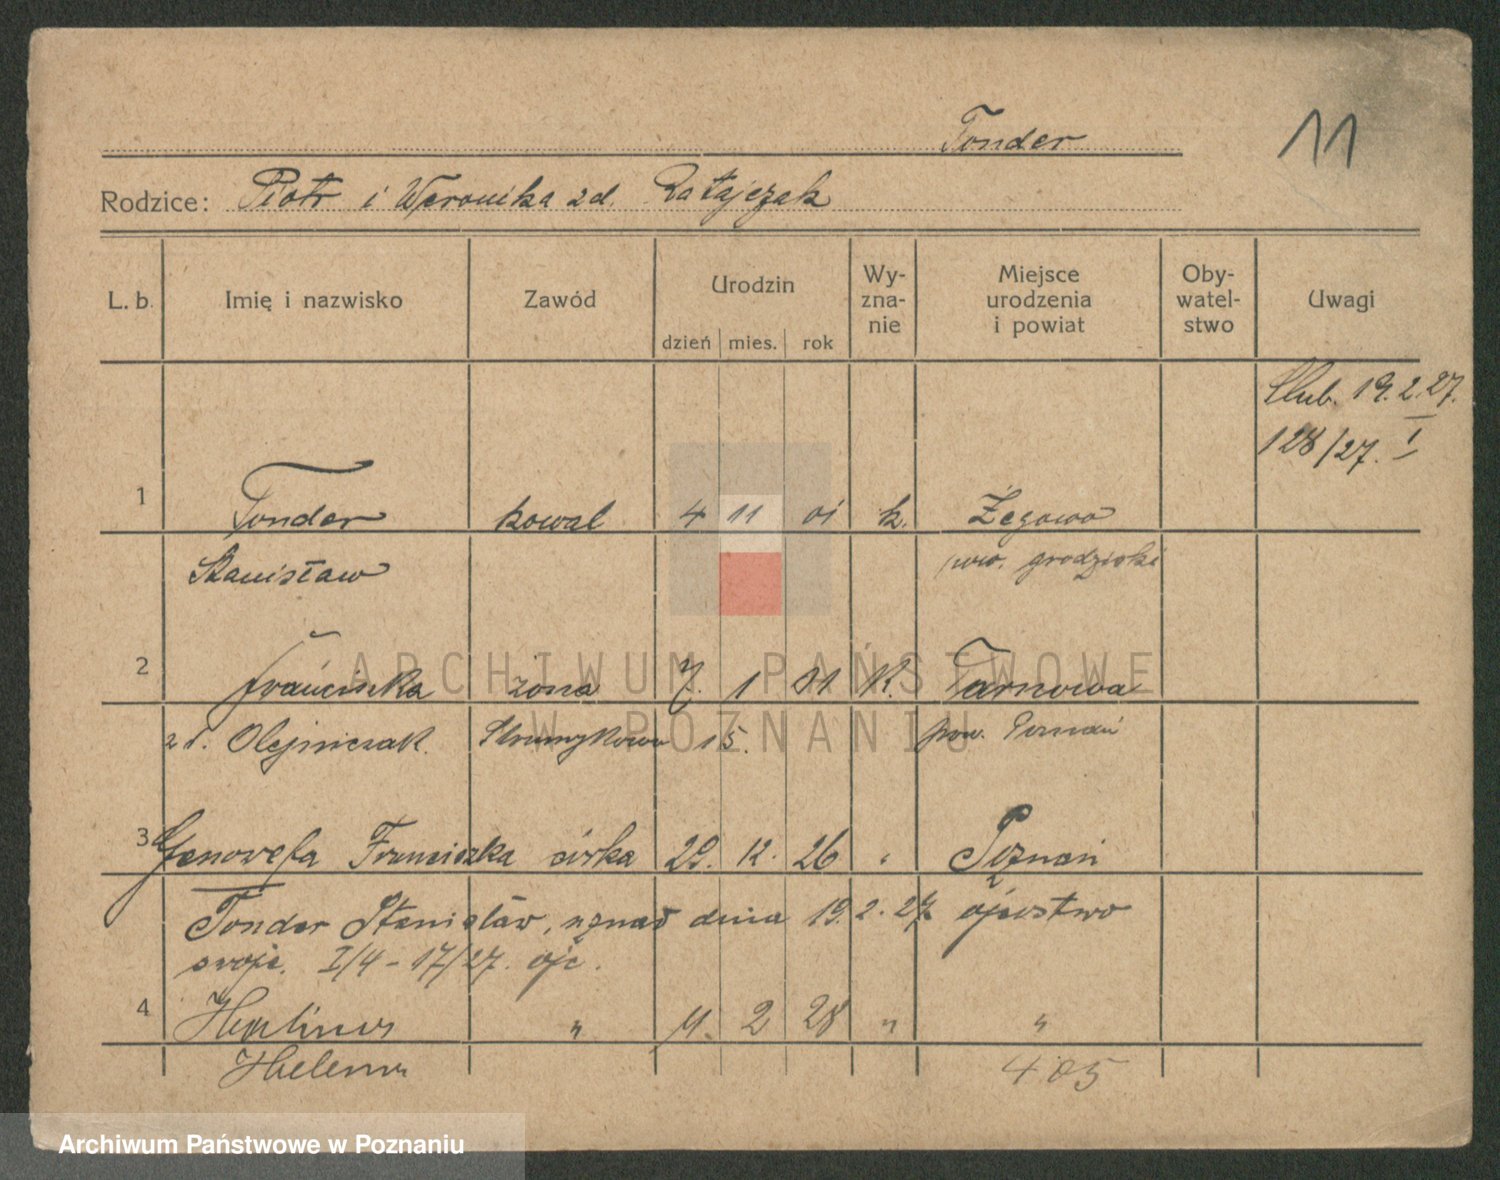 Tonder
11
Rodzice: Piotr i Weronika zd. Ratajczak
L. b. Imię i nazwisko Zawód Urodzin dzień mies. rok Wy-zna-nie Miejsce urodzenia i powiat Oby-watel-stwo Uwagi
Ślub. 19.2.27.
128/27. I
1 Tonder kowal 4 11 01 k. Żegowo
Stanisław pow. grodziski
2 Franciszka żona 7. 1 01 K. Tarnowa
zd. Olejniczak. Strumykowa 15. pow. Poznań
3 Genowefa Franciszka córka 29. 12. 26 " Poznań
Tonder Stanisław, uznał dnia 19.2.27 ojcostwo
swoje. I/4-17/27. ojc.
4 Halina " 11. 2 28 " "
Helena 405
ARCHIWUM PAŃSTWOWE
W POZNANIU
Archiwum Państwowe w Poznaniu